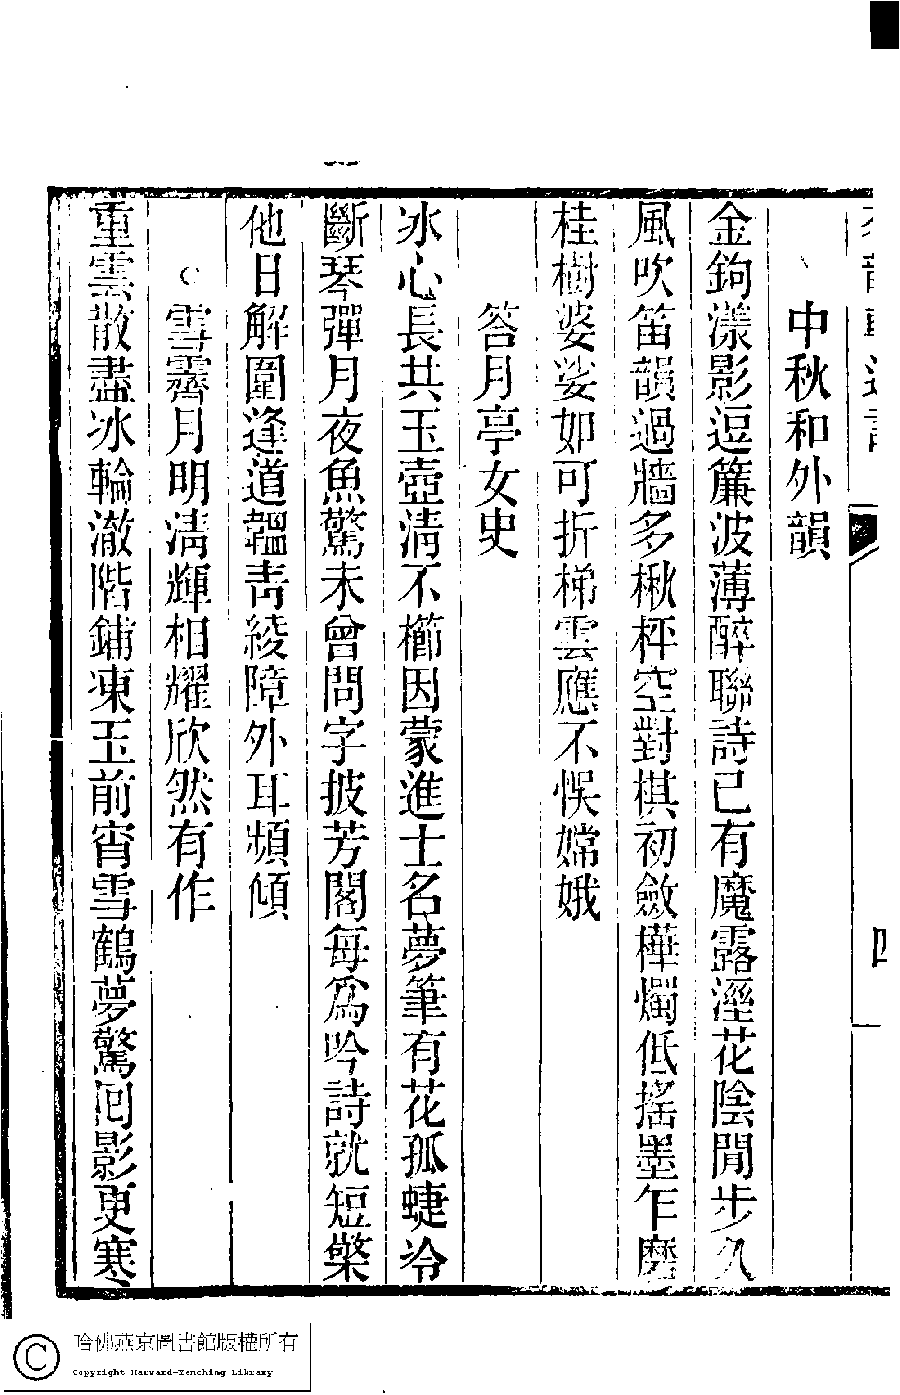 四
中秋和外韻
金鉤漾影逗簾波薄醉聯詩已有魔露溼花陰閒步久
風吹笛韻過牆多楸枰空對棋初斂樺燭低搖墨乍磨
桂樹婆娑如可折梯雲應不悞嫦娥
答月亭女史
冰心長共玉壺清不櫛因蒙進士名夢筆有花孤蜨冷
斷琴彈月夜魚驚未曾問字披芳閣每為吟詩就短檠
他日解圍逢道韞青綾障外耳頻傾
雪霽月明清輝相耀欣然有作
重雲散盡冰輪澈階鋪凍玉前宵雪鶴夢驚回影更寒
哈佛燕京圖書館版權所有
Copyright Harvard-Yenching Library